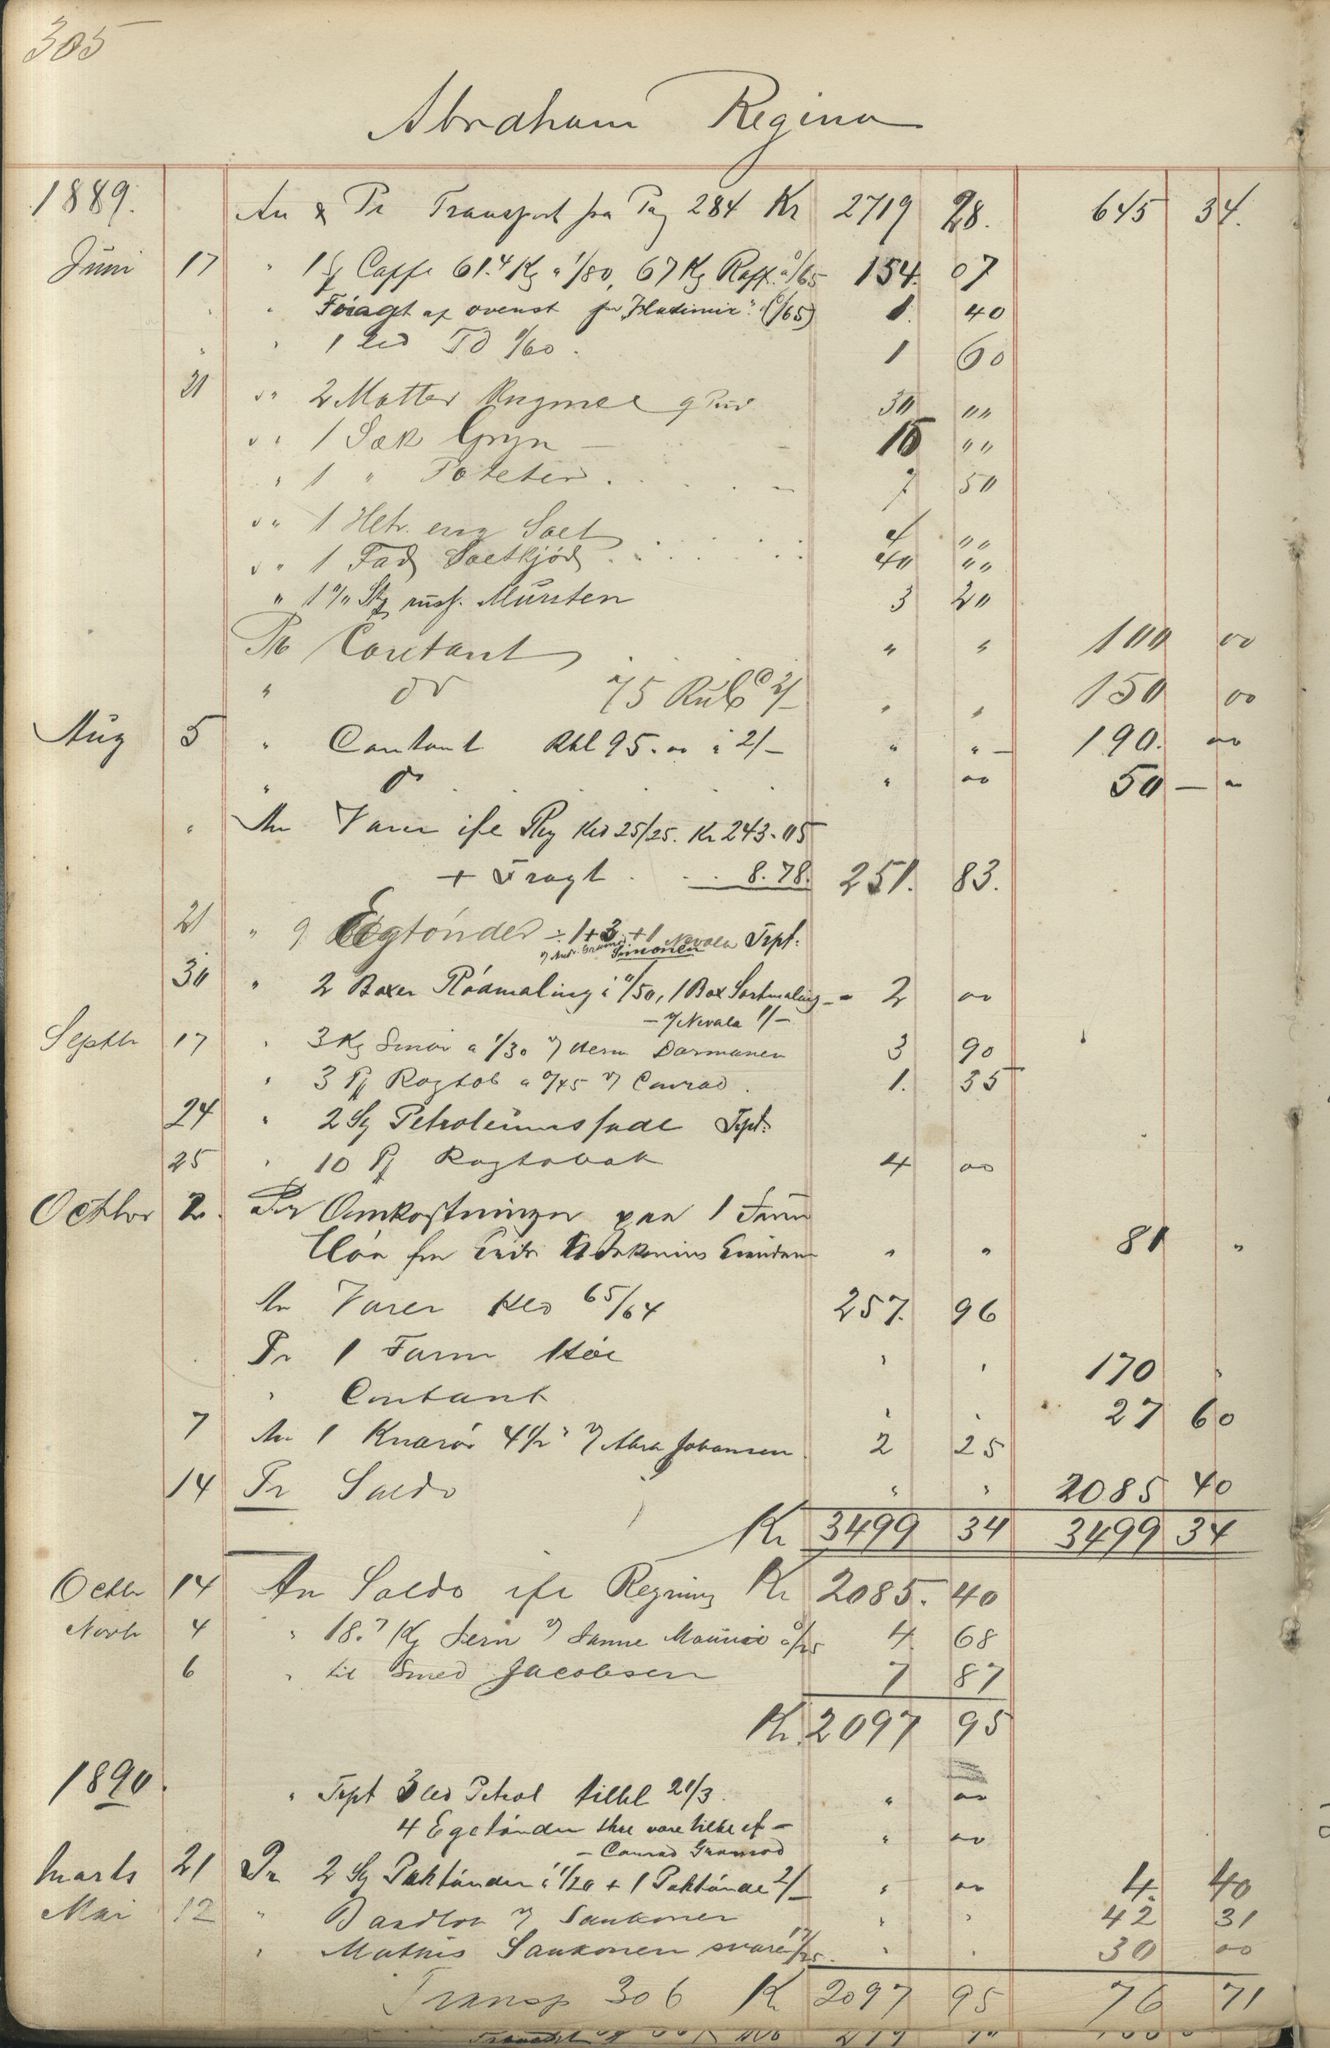 305
Abraham Regina
1889. An & Pr Transport fra Pag 284 Kr 2719 28. 645 34.
Juni 17 " 1 Caffe 61.4 Kg a 1/80, 67 Kg Raff. a 0/65 154. 07
" Fragt af ovenst pr "Wladimir" (0/65) 1. 40
" 1 Td 1/60. 1 60
21 " 2 Matter Rugmel 9 Pud 30 ""
" 1 Sæk Gryn — 15 ""
" 1 " Poteter . . . . — 7 50
" 1 Hltr. eng Salt 4 ""
" 1 Fad Saltkjød 40 ""
" 1 0/0 Stg russ. Mursten 3 20
Pr Contant " " 100 00
" do 75 Rub a 2/— " " 150 00
Aug 5 " Contant Rbl 95.00 à 2/— " " — 190. 00
" do " 00 50 — "
" An Varer ifl Reg Kld 25/25. Kr 243.05
+ Fragt . . . 8.78. 251. 83.
21 " 9 Egtønder ÷ 1 + 3 + 1 Nevala Trpt.
Simonsen
30 " 2 Boxer Rødmaling à 0/50, 1 Box Sortmaling — 2 00
— v/ Nevala 1/—
Septbr 17 " 3 Kg Smør a 1/30 v/ Herm Dormanen 3 90
" 3 Pf Rogtob a 0/45 v/ Conrad. 1. 35
24 " 2 Stg Petroleumsfade Trpt.
25 " 10 Pf Rogtobak 4 00
Octbor 2. Pr Omkostninger paa 1 Favn
Høa fra " " 81 "
An Varer Kld 65/64 257. 96
Pr 1 Favn Høe " " 170 "
" Contant " " 27 60
7 An 1 4 1/2 " v/ Abra Johansen 2 25
14 Pr Saldo " " 2085 40
Kr 3499 34 3499 34
Octbr 14 An Saldo ifl Regning Kr 2085. 40
Novb 4 " 18.7 Kg Jern v/ Sanne a 0/25 4. 68
6 " til Smed Jacobsen 7 87
Kr. 2097 95
1890. " Trpt 3 Petrol tilbl 21/3. " 00
4 Egetønder " 00
— Conrad Gramrod
Marts 21 Pr 2 Stg Paktønder à 1/20 + 1 Paktønde 2/— " 00 4. 40
Mai 12 " v/ Saukonen " " 42 31
" Mathis Saukonen " . 30 00
Transp 306 Kr 2097 95 76 71